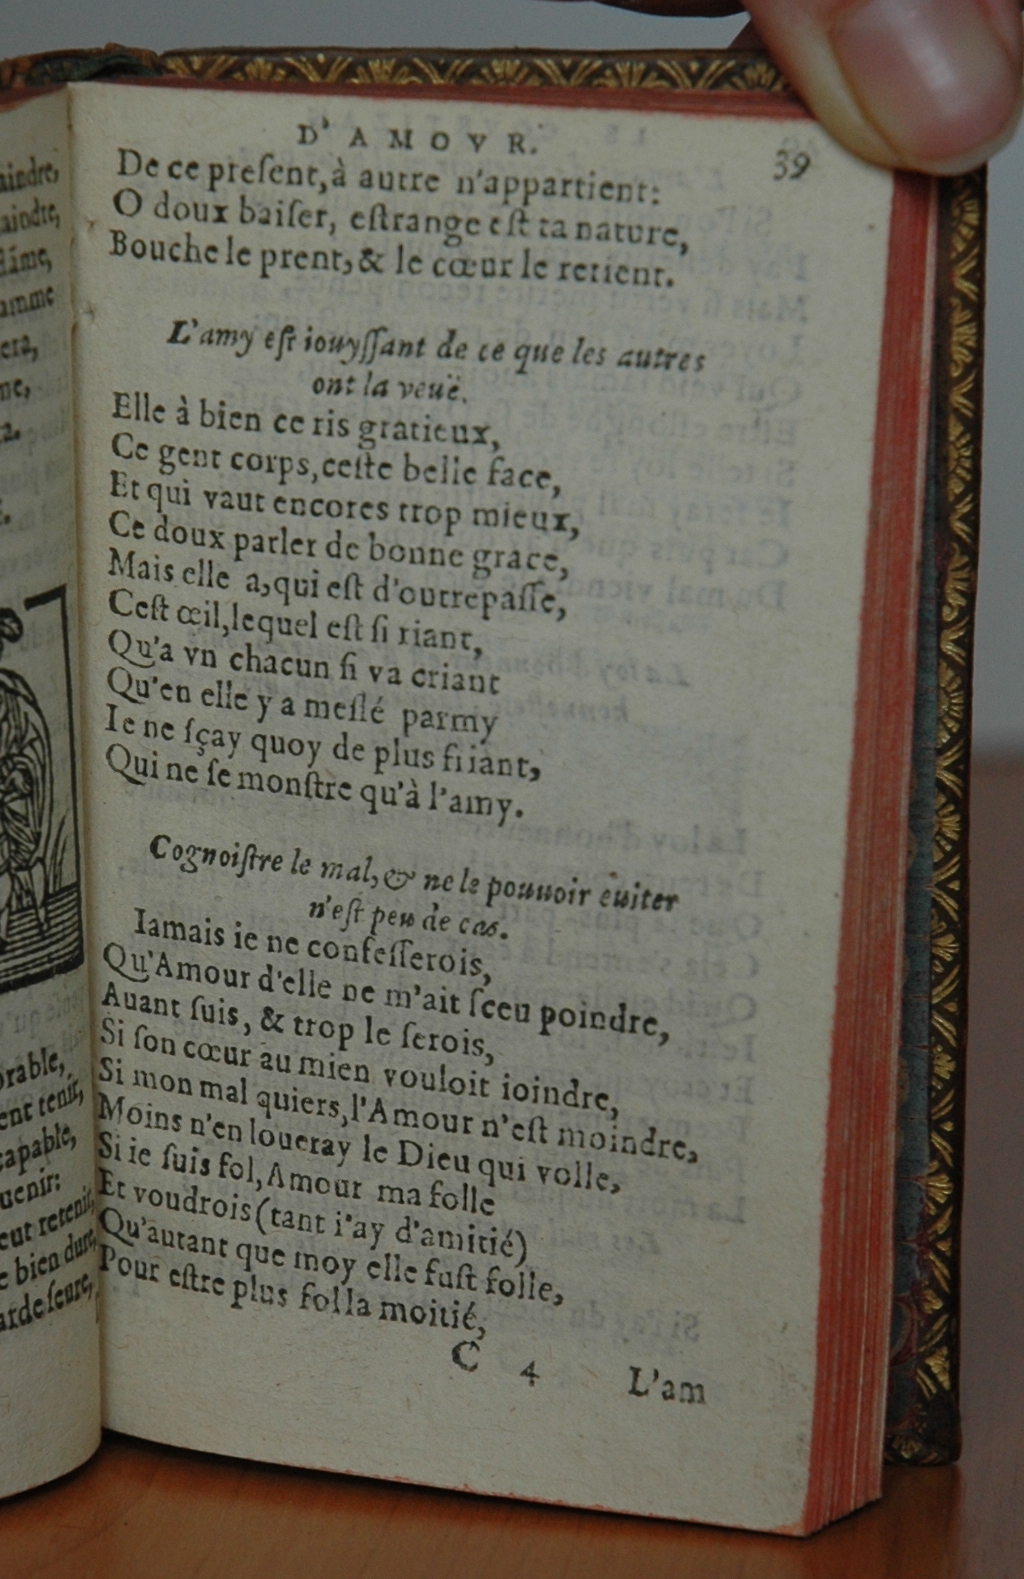 aindre,
aindre,
ame,
amme
era,
me,
D'AMOVR.
39
De ce preſent, à autre n'appartient:
O doux baiſer, eſtrange eſt ta nature,
Bouche le prent, & le cœur le retient.
L'amy eſt iouyſſant de ce que les autres
ont la veuë.
Elle à bien ce ris gratieux,
Ce gent corps, ceſte belle face,
Et qui vaut encores trop mieux,
Ce doux parler de bonne grace,
Mais elle a, qui eſt d'outrepaſſe,
Ceſt œil, lequel eſt ſi riant,
Qu'a vn chacun ſi va criant
Qu'en elle y a meſlé parmy
Ie ne ſçay quoy de plus friant,
Qui ne ſe monſtre qu'à l'amy.
Cognoiſtre le mal, & ne le pouuoir euiter
n'eſt peu de cas.
Iamais ie ne confeſſerois,
Qu'Amour d'elle ne m'ait ſceu poindre,
Auant ſuis, & trop le ſerois,
Si ſon cœur au mien vouloit ioindre,
Si mon mal quiers, l'Amour n'eſt moindre,
Moins n'en loueray le Dieu qui volle,
Si ie ſuis fol, Amour ma folle
Et voudrois (tant i'ay d'amitié)
Qu'autant que moy elle fuſt folle,
Pour eſtre plus fol la moitié,
C 4
L'am
orable,
ent tenir,
capable,
uenir:
eut retenir,
e bien dure,
arde ſeure,